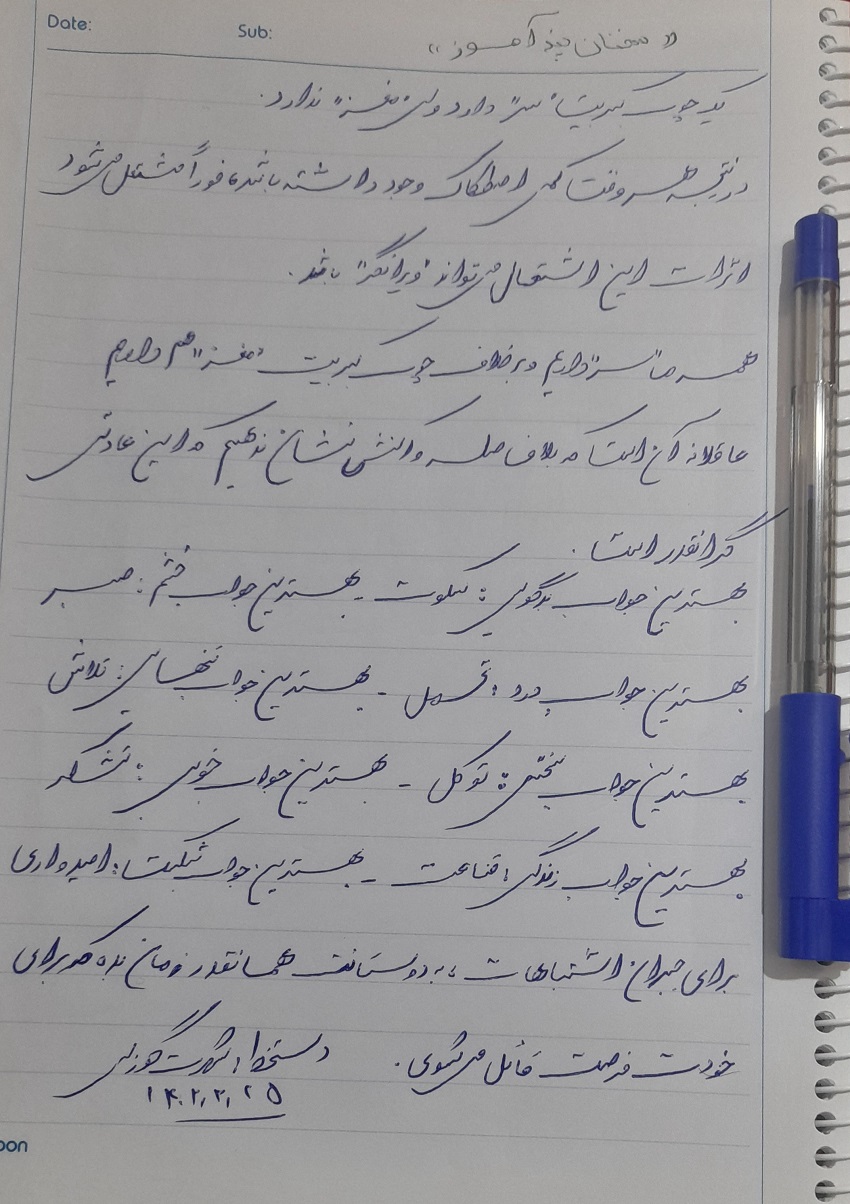 Date:
Sub:
« سخنان پند آموز »
یک چوب کبریت "سر" دارد ولی "مغز" ندارد.
در نتیجه هر وقت کمی اصطکاک وجود داشته باشد، فوراً مشتعل می شود
اثرات این اشتعال می تواند "ویرانگر" باشد.
همه ما "سر" داریم و برخلاف چوب کبریت "مغز" هم داریم
عاقلانه آن است که بلافاصله واکنش نشان ندهیم که این عادتی
گرانقدر است.
بهترین جواب بدگویی: سکوت - بهترین جواب خشم: صبر
بهترین جواب درد: تحمل - بهترین جواب تنهایی: تلاش
بهترین جواب سختی: توکل - بهترین جواب خوبی: تشکر
بهترین جواب زندگی: قناعت - بهترین جواب شکست: امیدواری
برای جبران اشتباهات، به دوستانت همانقدر زمان بده که برای
خودت فرصت قائل می شوی. دستخط:
۱۴۰۲,۲,۲۵